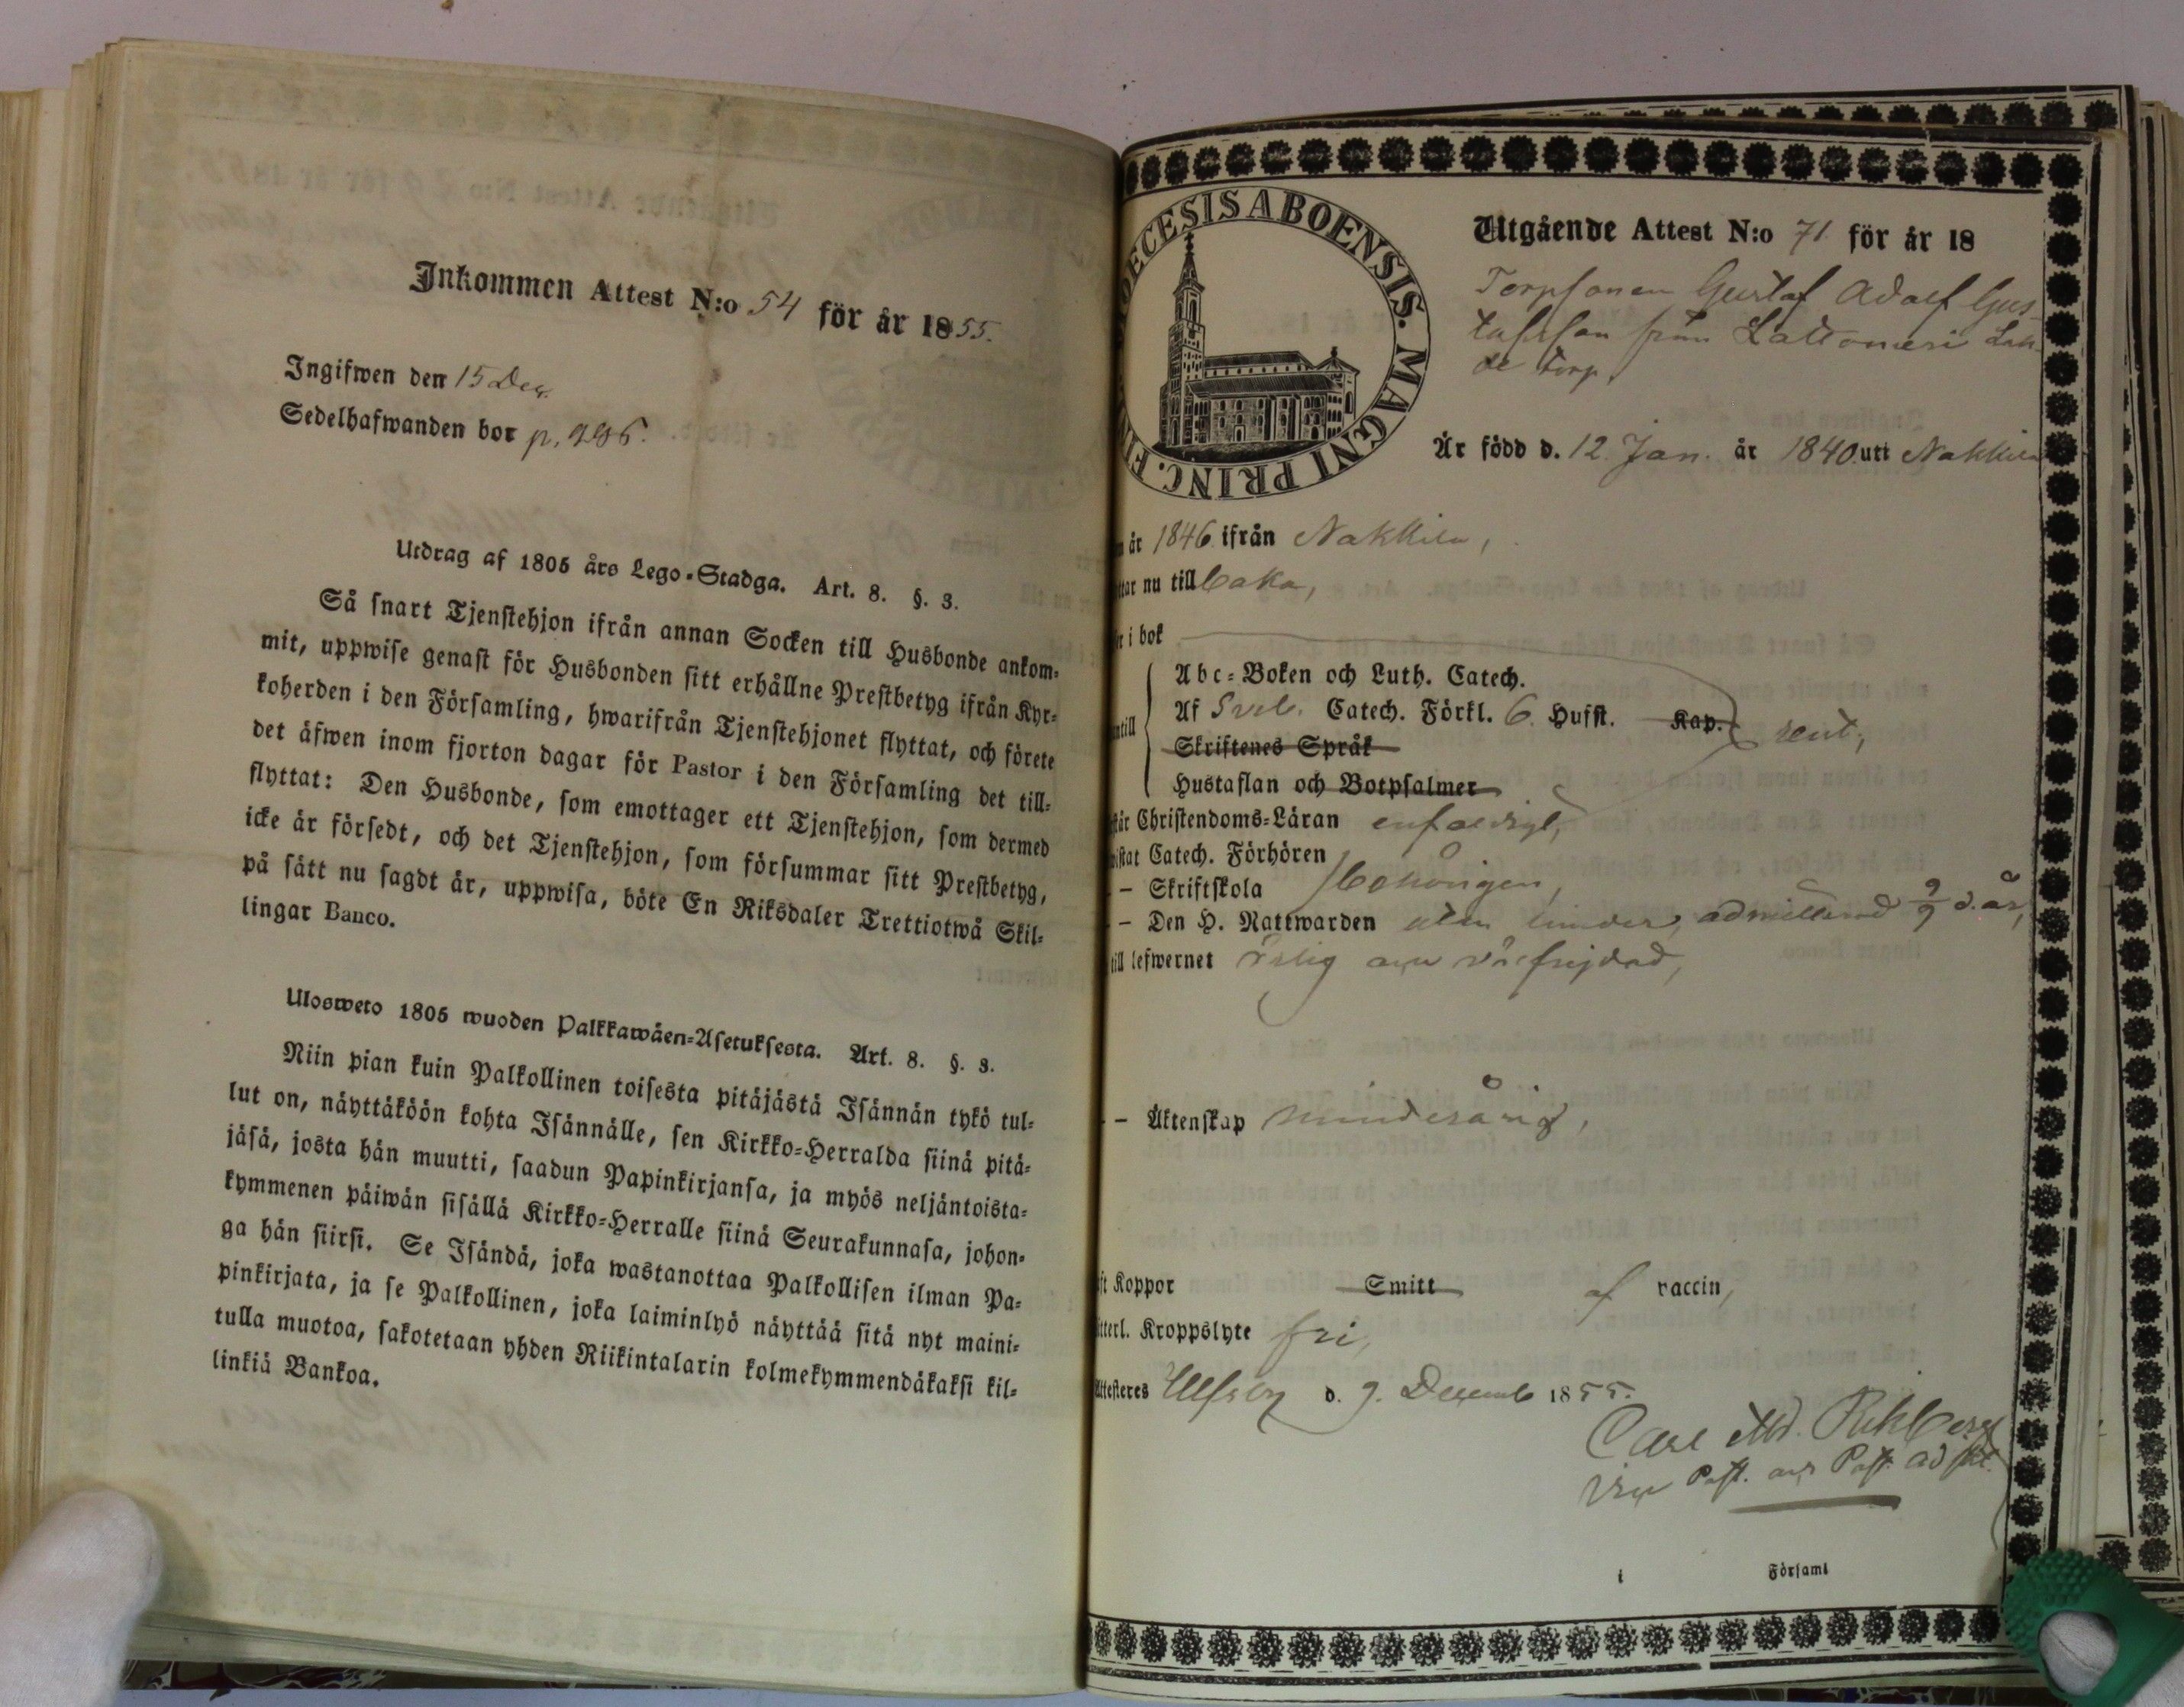 Inkommen Attest N:o 54 för år 1855.
Ingifwen den 15 Dec.
Sedelhafwanden bor p.
Utdrag af 1805 års Lego-Stadga. Art. 8. §. 3.
Så snart Tjenstehjon ifrån annan Socken till Husbonde ankom-
mit, uppwise genast för Husbonden sitt erhållne Prestbetyg ifrån Kyr-
koherden i den Församling, hwarifrån Tjenstehjonet flyttat, och förete
det äfwen inom fjorton dagar för Pastor i den Församling det till-
flyttat: Den Husbonde, som emottager ett Tjenstehjon, som dermed
icke är försedt, och det Tjenstehjon, som försummar sitt Prestbetyg,
på sätt nu sagdt är, uppwisa, böte En Riksdaler Trettiotwå Skil-
lingar Banco.
Ulosweto 1805 wuoden Palkkawäen-Asetuksesta. Art. 8. §. 3.
Niin pian kuin Palkollinen toisesta pitäjästä Isännän tykö tul-
lut on, näyttäköön kohta Isännälle, sen Kirkko-Herralda siinä pitä-
jäsä, josta hän muutti, saadun Papinkirjansa, ja myös neljäntoista-
kymmenen päiwän sisällä Kirkko-Herralle siinä Seurakunnasa, johon-
ga hän siirsi. Se Isändä, joka wastanottaa Palkollisen ilman Pa-
pinkirjata, ja se Palkollinen, joka laiminlyö näyttää sitä nyt maini-
tulla muotoa, sakotetaan yhden Riikintalarin kolmekymmendäkaksi kil-
linkiä Bankoa.
DIOECESIS ABOENSIS. MAGNI PRINC.
Utgående Attest N:o 71. för år 18
Torpsonen Gustaf Adolf Gus-
tafsson från Lattomeri
de torp,
Är född d. 12 Jan. år 1840. uti Nakkila
år 1846 ifrån Nakkila,
nu till
i bok
Abc-Boken och Luth. Catech.
Af Sveb. Catech. Förkl. 6. Hufst. Kap.
Skriftenes Språk
Hustaflan och Botpsalmer
Christendoms-Läran enfaldigt,
Catech. Förhören
– Skriftskola behörigen,
– Den H. Nattwarden utan hinder, admitterad 9/9 d. år,
till lefwernet ärlig och väl frejdad,
– Äktenskap minderårig,
Koppor Smitt af vaccin,
Kroppslyte fri,
Attesteres Ulfsby d. 9. Decemb 1855.
Carl
Vice Past.
i Församl